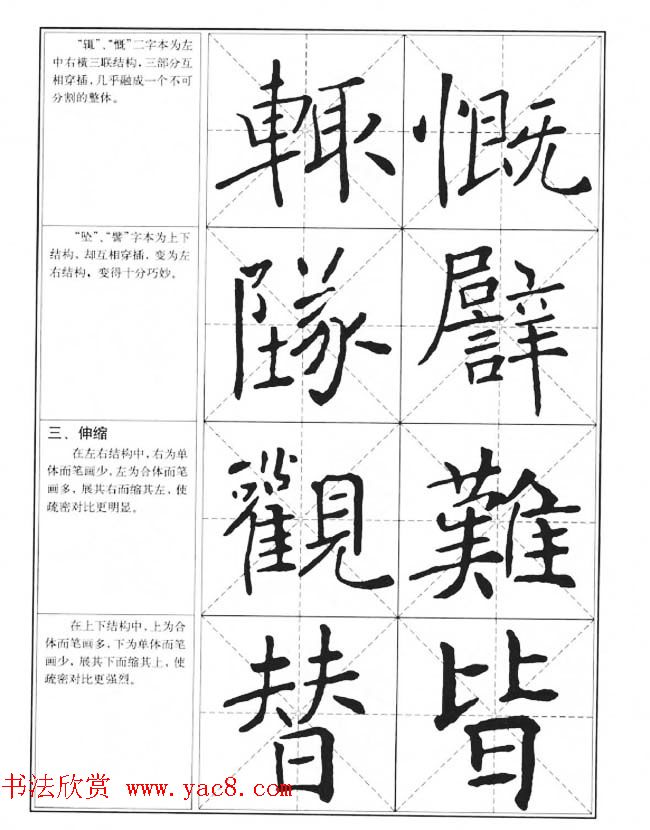 “辄”、“慨”二字本为左
中右横三联结构，三部分互
相穿插，几乎融成一个不可
分割的整体。
輙慨
“坠”、“譬”字本为上下
结构，却互相穿插，变为左
右结构，变得十分巧妙。
墜譬
三、伸缩
在左右结构中，右为单
体而笔画少，左为合体而笔
画多，展其右而缩其左，使
疏密对比更明显。
觀難
在上下结构中，上为合
体而笔画多，下为单体而笔
画少，展其下而缩其上，使
疏密对比更强烈。
替皆
书法欣赏 www.yac8.com